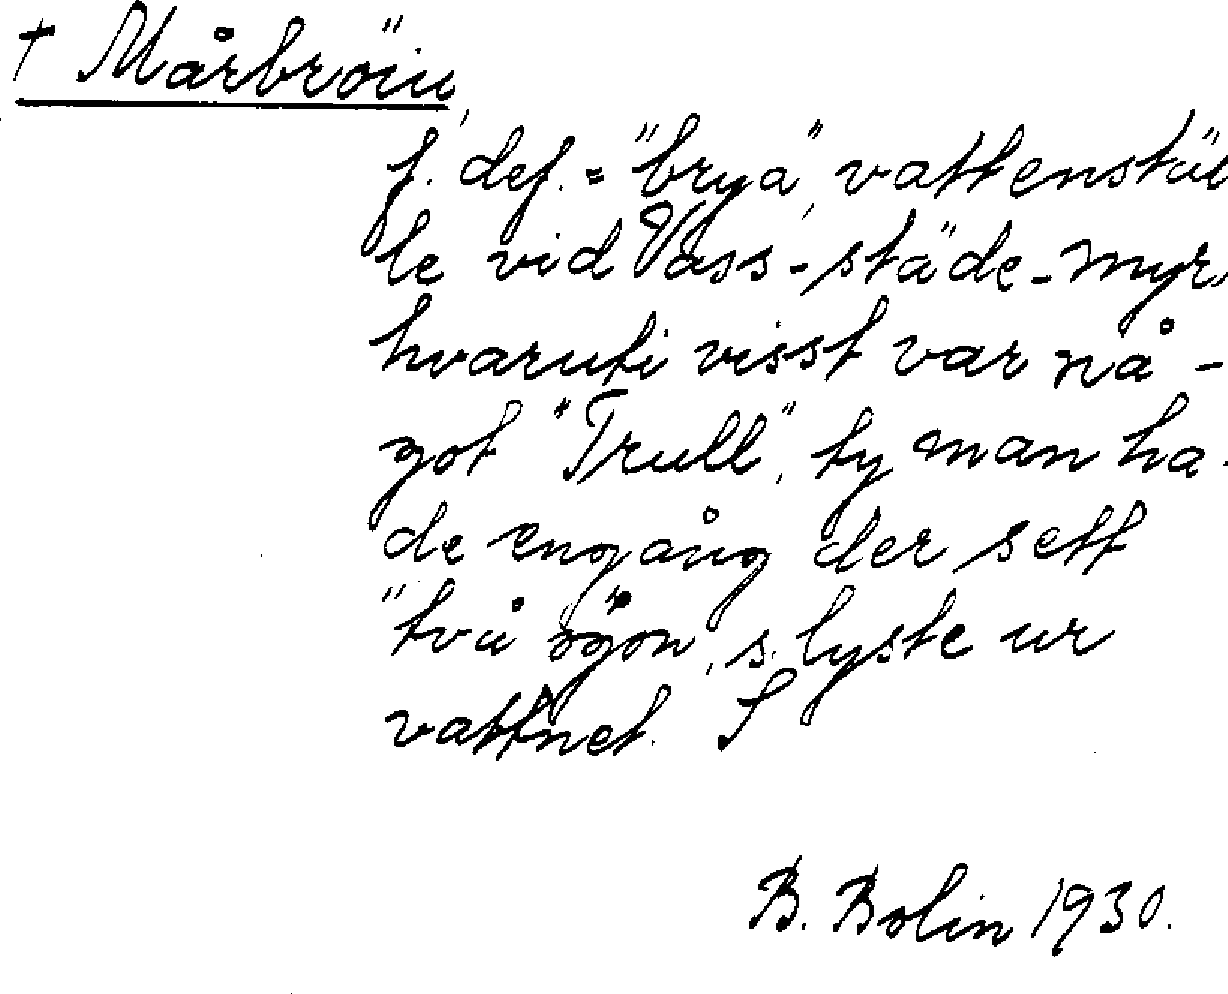 † Mårbröiu,
f. def. = "brya", vattenstäl
le vid Vass-städe-myr,
hvaruti visst var nå-
got "Trull", ty man ha-
de engång der sett
"två ögon", s. lyste ur
vattnet. S
B. Bolin 1930.